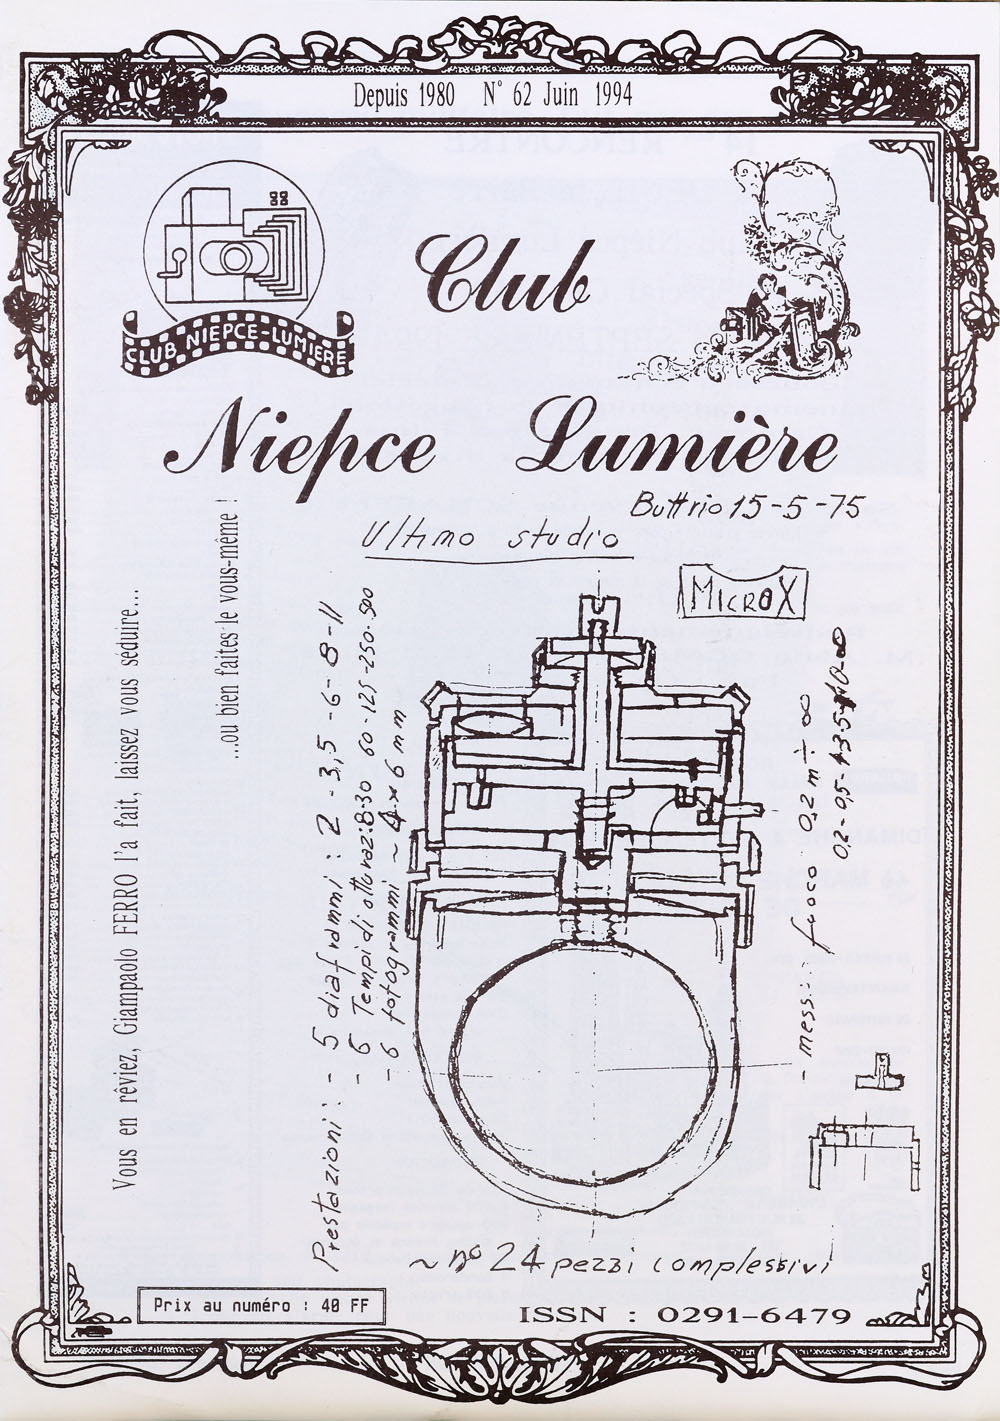 Depuis 1980 N° 62 Juin 1994
CLUB NIEPCE-LUMIERE
Club
Niepce Lumière
Buttrio 15-5-75
Ultimo studio
MICROX
Vous en rêviez, Giampaolo FERRO l'a fait, laissez vous séduire...
...ou bien faites-le vous-même !
Prestazioni :- 5 diaframmi : 2 - 3,5 - 6 - 8 - 11
- 6 Tempi di otturaz: B 30 60 - 125 - 250 - 500
- 6 fotogrammi ~ 4 x 6 mm
- mess. : fuoco 0,2 m ÷ ∞
0,2 - 0,5 -
~ n° 24 pezzi complessivi
Prix au numéro : 40 FF
ISSN : 0291-6479